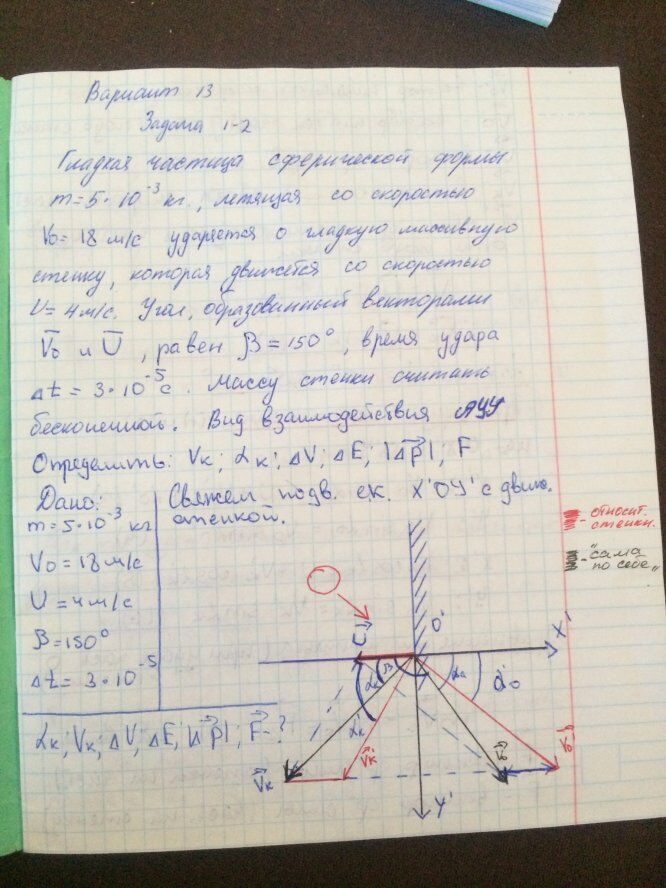 Вариант 13
Задача 1-2
Гладкая частица сферической формы
m = 5·10⁻³ кг., летящая со скоростью
V₀ = 18 м/с ударяется о гладкую массивную
стенку, которая движется со скоростью
U = 4 м/с. Угол, образованный векторами
V̄₀ и Ū, равен β = 150°, время удара
Δt = 3·10⁻⁵ с. Массу стенки считать
бесконечной. Вид взаимодействия АУУ
Определить: Vк; αк; ΔV; ΔE; |Δp⃗|; F
Дано:
m = 5·10⁻³ кг
V₀ = 18 м/с
U = 4 м/с
β = 150°
Δt = 3·10⁻⁵
αк; Vк; ΔV; ΔE; |Δp⃗|; F⃗ - ?
Свяжем подв. с.к. X'O'Y' с движ.
стенкой.
- относит.
стенки.
- "сама
по себе"
O'
X'
U⃗
αк
β
α₀
α'₀
α'к
V⃗к
V⃗'к
Y'